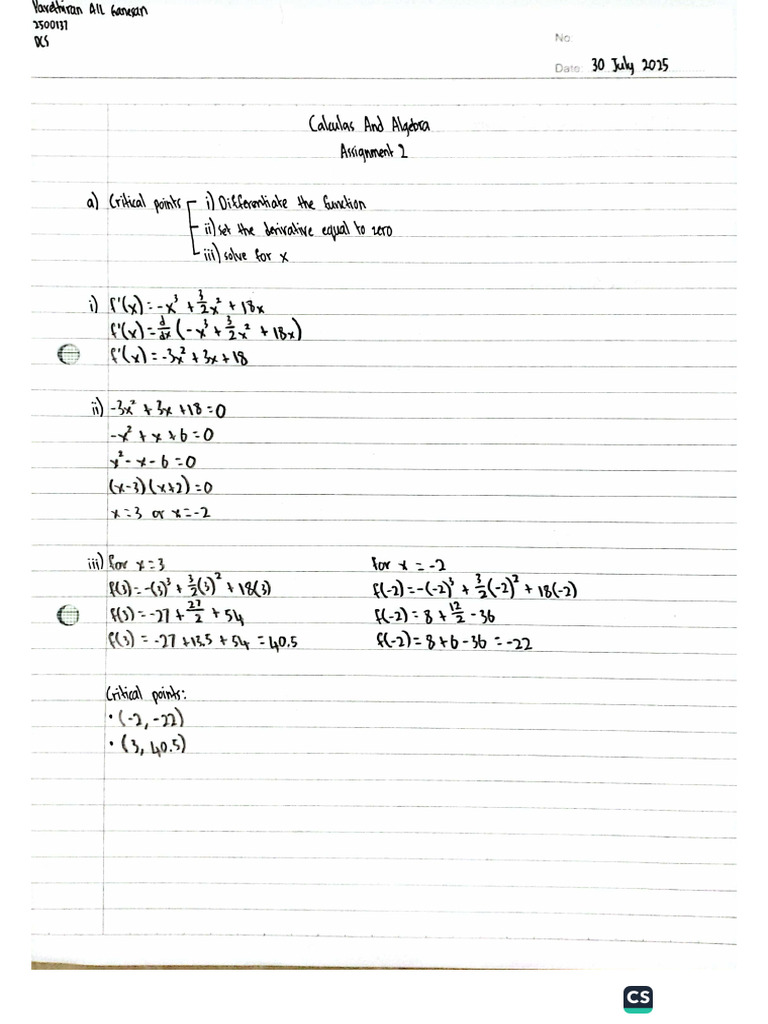 Varethiran A/L Ganesan
2500137
DCS
No:
Date: 30 July 2025
Calculas And Algebra
Assignment 2
a) Critical points
i) Differentiate the function
ii) set the derivative equal to zero
iii) solve for x
i) f'(x) = -x³ + 3/2x² + 18x
f'(x) = d/dx (-x³ + 3/2x² + 18x)
f'(x) = -3x² + 3x + 18
ii) -3x² + 3x + 18 = 0
-x² + x + 6 = 0
x² - x - 6 = 0
(x-3)(x+2) = 0
x = 3 or x = -2
iii) for x = 3
f(3) = -(3)³ + 3/2(3)² + 18(3)
f(3) = -27 + 27/2 + 54
f(3) = -27 + 13.5 + 54 = 40.5
for x = -2
f(-2) = -(-2)³ + 3/2(-2)² + 18(-2)
f(-2) = 8 + 12/2 - 36
f(-2) = 8 + 6 - 36 = -22
Critical points:
• (-2, -22)
• (3, 40.5)
CS